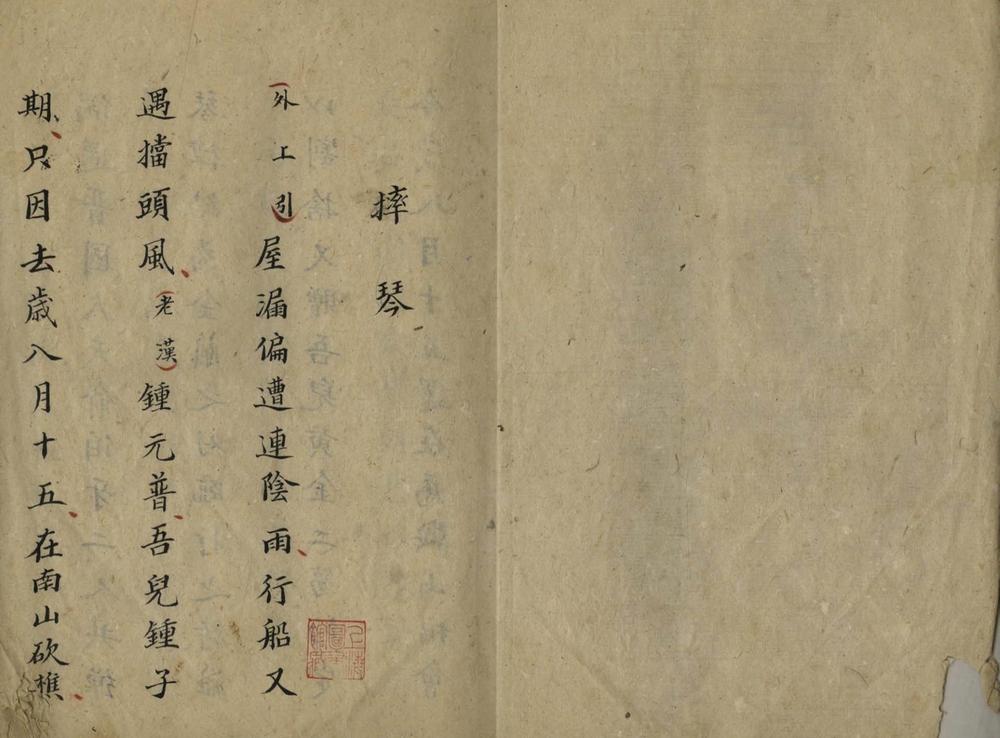 摔琴
外上引屋漏偏遭連陰雨行船又
遇擋頭風老漢鍾元普吾兒鍾子
期只因去歲八月十五在南山砍樵